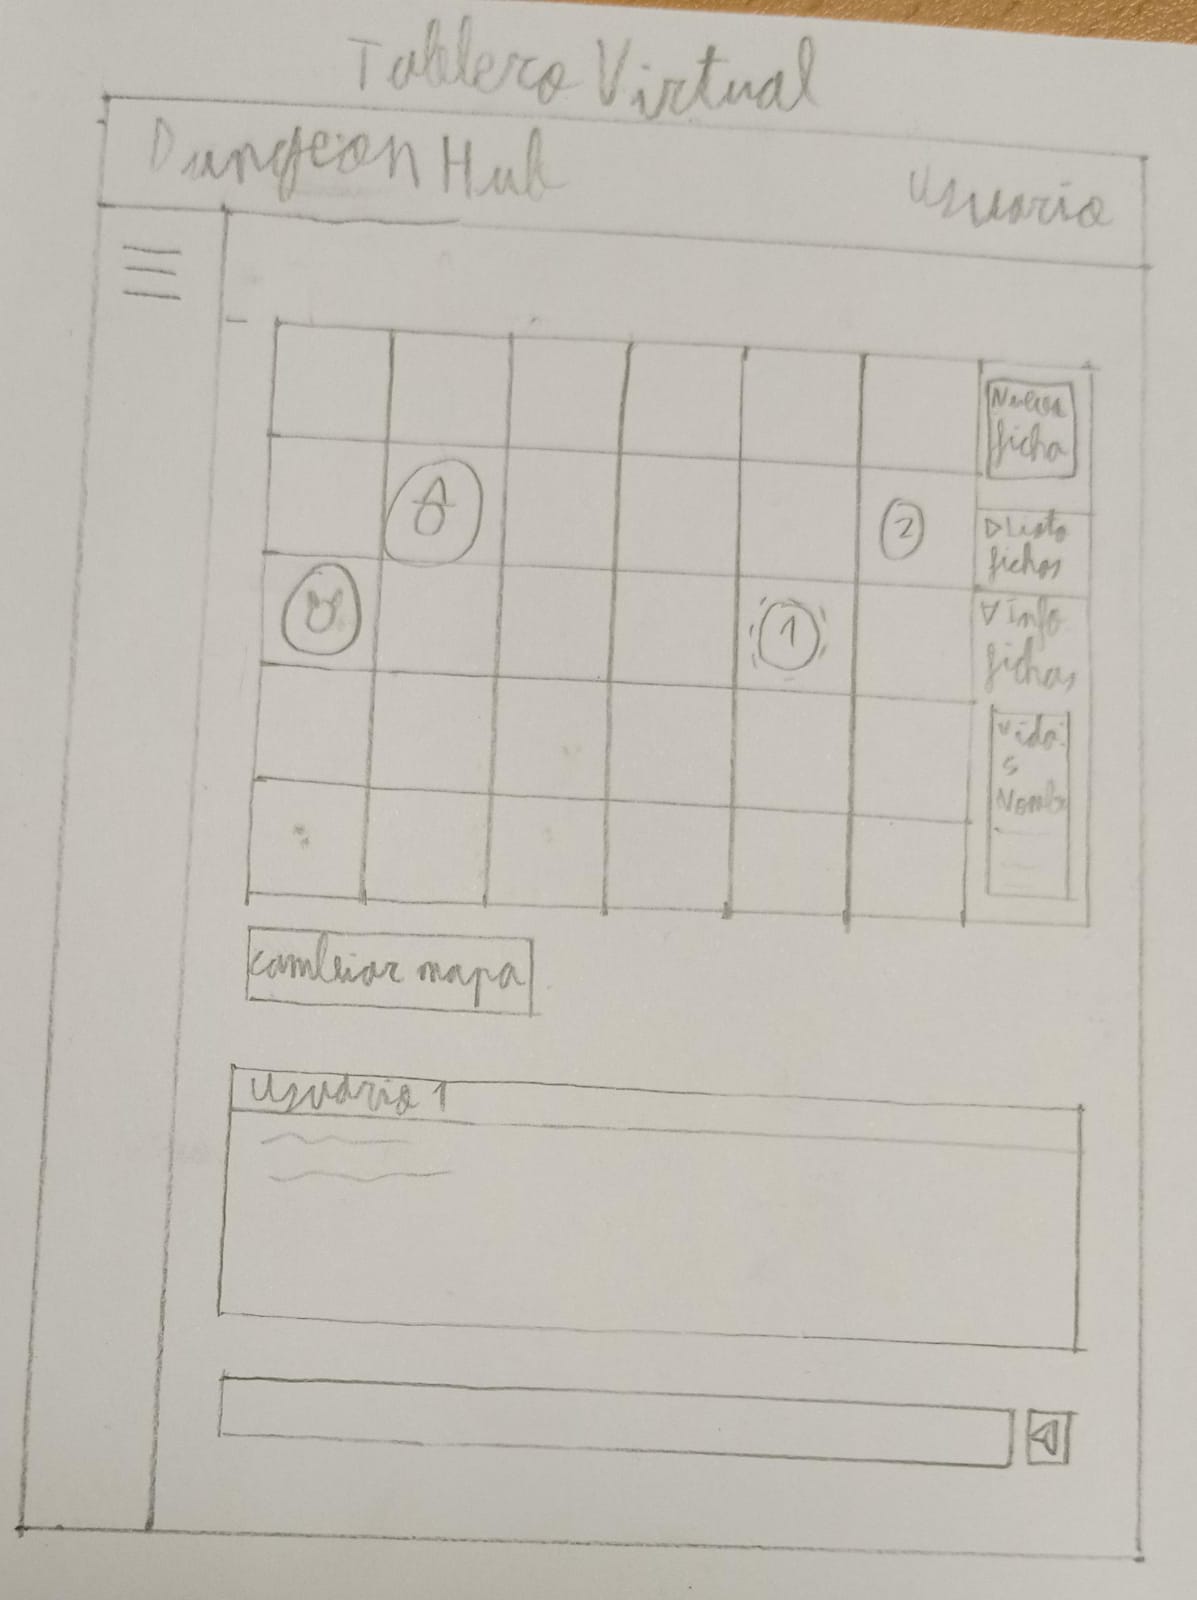 Tablero Virtual
Dungeon Hub
Usuario
Nueva
ficha
Lista
fichas
Info
fichas
Vida:
5
Nombr
2
1
cambiar mapa
Usuario 1